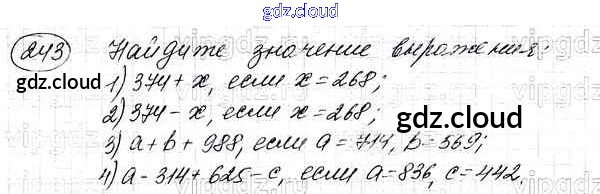 gdz.cloud
243 Найдите значение выражения:
gdz.cloud
1) 374 + x, если x = 268;
2) 374 - x, если x = 268;
gdz.cloud
3) a + b + 988, если a = 714, b = 569;
4) a - 314 + 625 - c, если a = 836, c = 442.
gdz.cloud